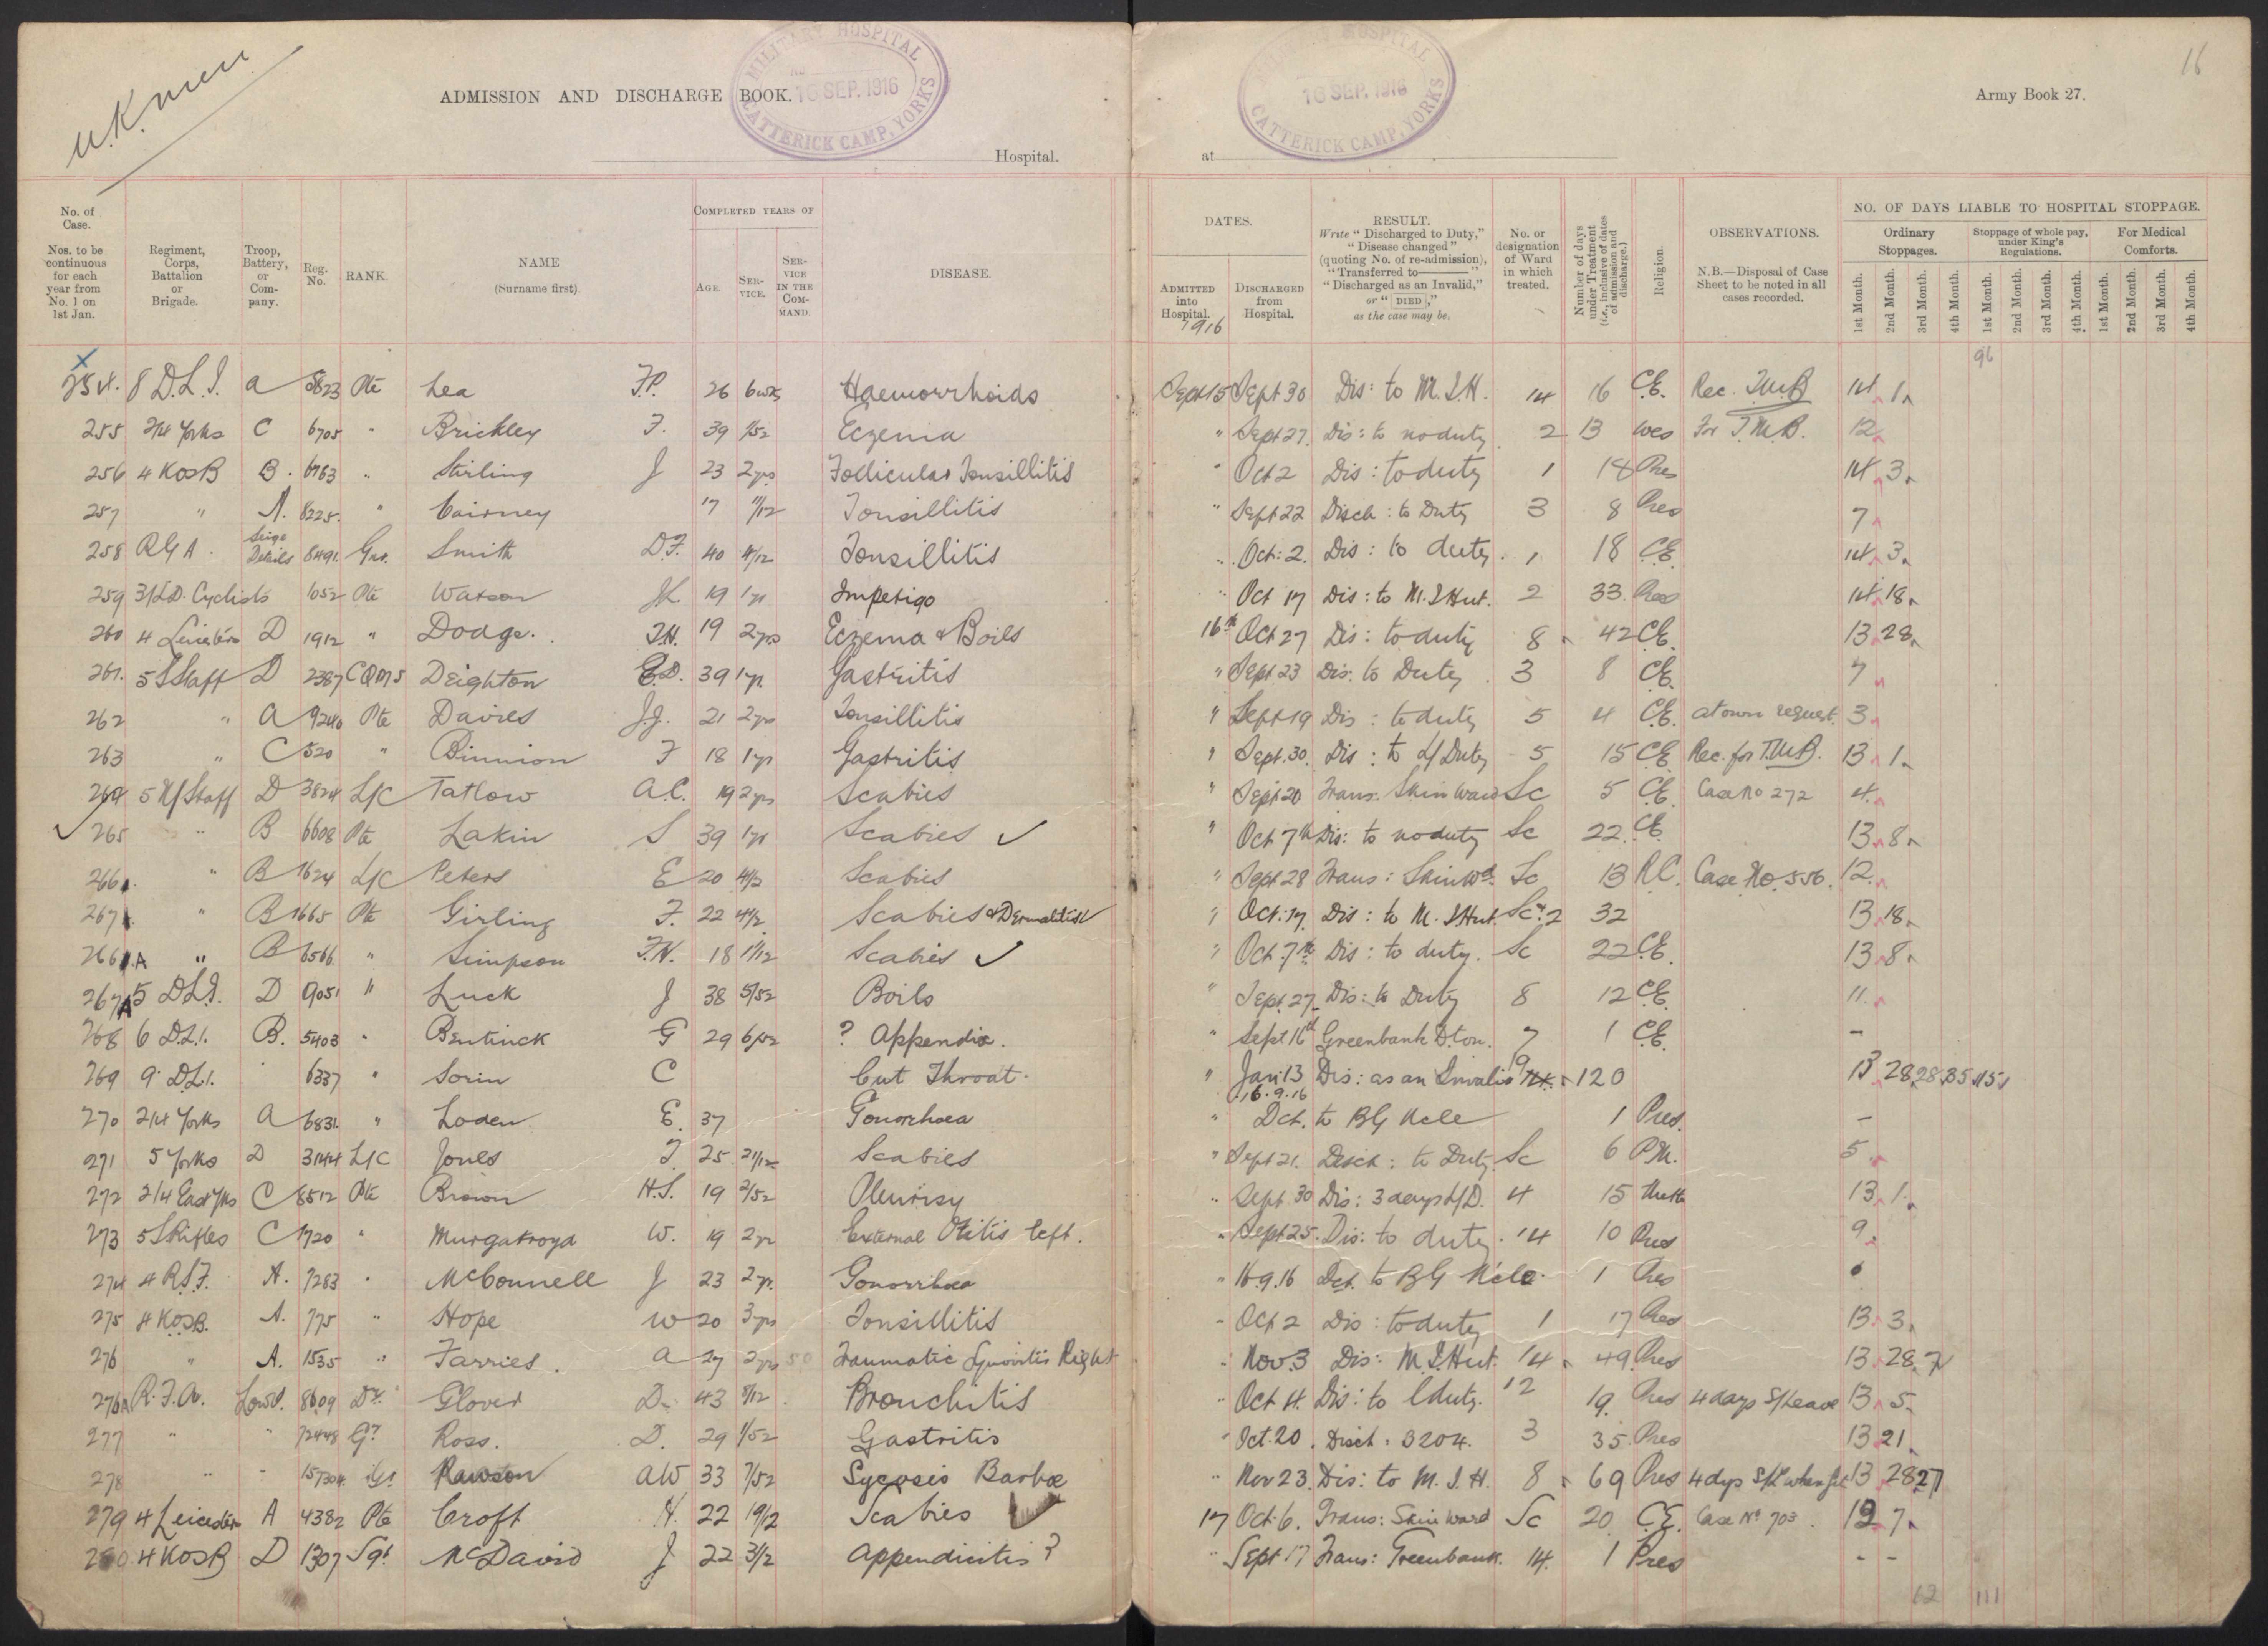 U.K. men
16
ADMISSION AND DISCHARGE BOOK.
MILITARY HOSPITAL
16 SEP. 1916
CATTERICK CAMP, YORKS
Hospital.
at
HOSPITAL
16 SEP. 1916
CATTERICK CAMP, YORKS
Army Book 27.
No. of Case.
Nos. to be continuous for each year from No. 1 on 1st Jan.
Regiment, Corps, Battalion or Brigade.
Troop, Battery, or Company.
Reg. No.
RANK.
NAME
(Surname first).
COMPLETED YEARS OF
AGE.
SERVICE.
SERVICE IN THE COMMAND.
DISEASE.
DATES.
ADMITTED into Hospital.
1916
DISCHARGED from Hospital.
RESULT.
Write "Discharged to Duty,"
"Disease changed"
(quoting No. of re-admission),
"Transferred to ——"
"Discharged as an Invalid,"
or "DIED,"
as the case may be.
No. or designation of Ward in which treated.
Number of days under Treatment (i.e., inclusive of dates of admission and discharge.)
Religion.
OBSERVATIONS.
N.B.—Disposal of Case Sheet to be noted in all cases recorded.
NO. OF DAYS LIABLE TO HOSPITAL STOPPAGE.
Ordinary Stoppages.
Stoppage of whole pay, under King's Regulations.
For Medical Comforts.
1st Month. 2nd Month. 3rd Month. 4th Month. 1st Month. 2nd Month. 3rd Month. 4th Month. 1st Month. 2nd Month. 3rd Month. 4th Month.
96
254. 8 D.L.I. A 5823 Pte Lea F.P. 26 6wks Haemorrhoids Sept 15 Sept 30 Dis: to M.I.H. 14 16 C.E. Rec. T.M.B 14 1
255 2/4 Yorks C 6705 " Brickley F. 39 1/52 Eczema " Sept 27. Dis: to no duty 2 13 Wes For T.M.B. 12
256 4 KOSB B. 6763 " Stirling J 23 2yrs Follicular Tonsillitis " Oct 2 Dis: to duty 1 18 Pres 14 3
257 " A. 8225. " Cairney 17 11/12 Tonsillitis " Sept 22 Disch: to Duty 3 8 Pres 7
258 RGA. Seige Details 8491. Gnr. Smith D.F. 40 4/12 Tonsillitis " Oct: 2. Dis: to duty. 1 18 C.E. 14 3
259 3/L.D. Cyclists 1052 Pte Watson J.L. 19 1yr Impetigo " Oct 17 Dis: to M.I Hut. 2 33 Pres 14 18
260 4 Leicesters D 1912 " Dodge. T.H. 19 2yrs Eczema & Boils 16th Oct 27 Dis: to duty 8 42 C.E. 13 28
261. 5 S Staff D 2387 CQMS Deighton E.D. 39 1yr. Gastritis " Sept 23 Dis: to Duty. 3 8 C.E. 7
262 " A 9240 Pte Davies J.J. 21 2yrs Tonsillitis " Sept 19 Dis: to duty 5 4 C.E. at own request. 3
263 " C 520 " Binnion F 18 1yr Gastritis " Sept. 30. Dis: to L/Duty 5 15 C.E Rec. for T.M.B. 13 1
264 5 N/Staff D 3824 L/C Tatlow A.C. 19 2yrs Scabies " Sept 20 Trans: Skin Ward Sc 5 C.E. Case No 272 4
265 " B 6608 Pte Lakin S 39 1yr Scabies ✓ " Oct 7th Dis: to no duty Sc 22 C.E. 13 8
266 " B 1624 L/C Peters E 20 4/2 Scabies " Sept 28 Trans: Skin Wd. Sc 13 R.C. Case No. 556. 12
267 " B 1665 Pte Girling F. 22 4/2 Scabies & Dermatitis ✓ " Oct: 17. Dis: to M. I Hut. Sc & 2 32 13 18
266.A " B 6566 " Simpson F.W. 18 1/12 Scabies ✓ " Oct. 7th Dis: to duty. Sc 22 C.E. 13 8
267A 5 D.L.I. D 9051 " Luck J 38 5/52 Boils " Sept. 27. Dis: to Duty 8 12 C.E. 11
268 6 D.L.I. B. 5403 " Bentinck G 29 6/52 ? Appendix. " Sept 16th Greenbank D.ton. 7 1 C.E. -
269 9 D.L.I. 6337 " Sorin C Cut Throat. " Jan 13 Dis: as an Invalid 19 120 13 28 28 35 15
270 2/4 Yorks A 6831. " Loden E. 37 Gonorrhoea " 16.9.16 Dct. to BG Ncle 1 Pres. -
271 5 Yorks D 3144 L/C Jones T. 25 21/12 Scabies " Sept 21. Disch: to Duty. Sc 6 P.M. 5
272 2/4 East Yks C 8512 Pte Brown H.S. 19 2/52 Pleurisy " Sept 30 Dis: 3 days L/D. 4 15 Meth 13 1
273 5 S Rifles C 1720 " Murgatroyd W. 19 2yr External Otitis left. " Sept 25. Dis: to duty. 14 10 Pres 9
274 4 R.S.F. A. 7283 " McConnell J 23 2yr. Gonorrhoea " 16.9.16 Dct. to BG N'cle. 1 Pres
275 4 KOSB. A. 775 " Hope W 20 3yrs Tonsillitis " Oct 2 Dis: to duty 1 17 Pres 13 3
276 " A. 1535 " Farries. A 27 2yrs 50 Traumatic Synovitis Right " Nov. 3 Dis: M.I. Hut. 14 49 Pres 13 28 7
276a R.F.A. Lowd. 8609 Dr. Glover D. 43 8/12 Bronchitis " Oct 4. Dis: to l duty. 12 19. Pres 4 days S/Leave 13 5
277 " " 72448 Gr Ross. D. 29 1/52 Gastritis " Oct. 20. Disch: 3204. 3 35 Pres 13 21
278 " " 157304 Gr Rawson AW 33 7/52 Sycosis Barbae " Nov 23. Dis: to M.I.H. 8 69 Pres 4 dys S/L 13 28 27
279 4 Leicesters A 4382 Pte Croft H. 22 19/12 Scabies ✓ 17 Oct. 6. Trans: Skin Ward Sc 20 C.E. Case No 703. 12 7
280 4 KOSB D 1307 Sgt McDavid J 22 3/12 Appendicitis? " Sept 17 Trans: Greenbank. 14. 1 Pres - -
62 111